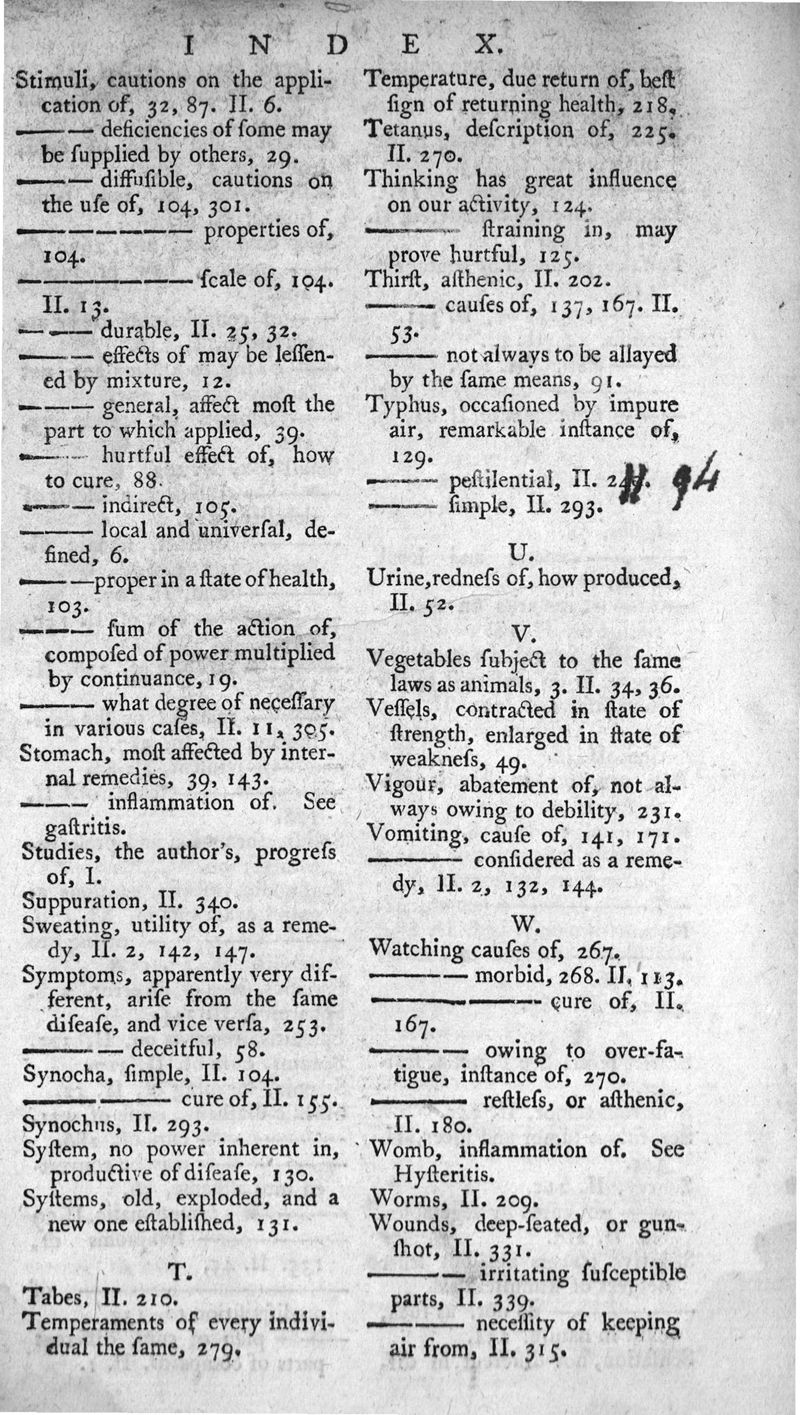 INDEX.
Stimuli, cautions on the appli-
cation of, 32, 87. II. 6.
——— deficiencies of ſome may
be ſupplied by others, 29.
——— diffuſible, cautions on
the uſe of, 104, 301.
—————— properties of,
104.
—————— ſcale of, 104.
II. 13.
——— durable, II. 25, 32.
——— effects of may be leſſen-
ed by mixture, 12.
——— general, affect moſt the
part to which applied, 39.
——— hurtful effect of, how
to cure, 88.
——— indirect, 105.
——— local and univerſal, de-
fined, 6.
———proper in a ſtate of health,
103.
——— ſum of the action of,
compoſed of power multiplied
by continuance, 19.
——— what degree of neceſſary
in various caſes, II. 11, 305.
Stomach, moſt affected by inter-
nal remedies, 39, 143.
——— inflammation of. See
gaſtritis.
Studies, the author's, progreſs
of, I.
Suppuration, II. 340.
Sweating, utility of, as a reme-
dy, II. 2, 142, 147.
Symptoms, apparently very dif-
ferent, ariſe from the ſame
diſeaſe, and vice verſa, 253.
———— deceitful, 58.
Synocha, ſimple, II. 104.
—————— cure of, II. 155.
Synochus, II. 293.
Syſtem, no power inherent in,
productive of diſeaſe, 130.
Syſtems, old, exploded, and a
new one eſtabliſhed, 131.
T.
Tabes, II. 210.
Temperaments of every indivi-
dual the ſame, 279.
Temperature, due return of, beſt
ſign of returning health, 218.
Tetanus, deſcription of, 225.
II. 270.
Thinking has great influence
on our activity, 124.
——— ſtraining in, may
prove hurtful, 125.
Thirſt, aſthenic, II. 202.
——— cauſes of, 137, 167. II.
53.
——— not always to be allayed
by the ſame means, 91.
Typhus, occaſioned by impure
air, remarkable inſtance of,
129.
——— peſtilential, II. 94
——— ſimple, II. 293.
U.
Urine, redneſs of, how produced,
II. 52.
V.
Vegetables ſubject to the ſame
laws as animals, 3. II. 34, 36.
Veſſels, contracted in ſtate of
ſtrength, enlarged in ſtate of
weakneſs, 49.
Vigour, abatement of, not al-
ways owing to debility, 231.
Vomiting, cauſe of, 141, 171.
———— conſidered as a reme-
dy, II. 2, 132, 144.
W.
Watching cauſes of, 267.
———— morbid, 268. II. 113.
——————— cure of, II.
167.
———— owing to over-fa-
tigue, inſtance of, 270.
———— reſtleſs, or aſthenic,
II. 180.
Womb, inflammation of. See
Hyſteritis.
Worms, II. 209.
Wounds, deep-ſeated, or gun-
ſhot, II. 331.
———— irritating ſuſceptible
parts, II. 339.
———— neceſſity of keeping
air from, II. 315.